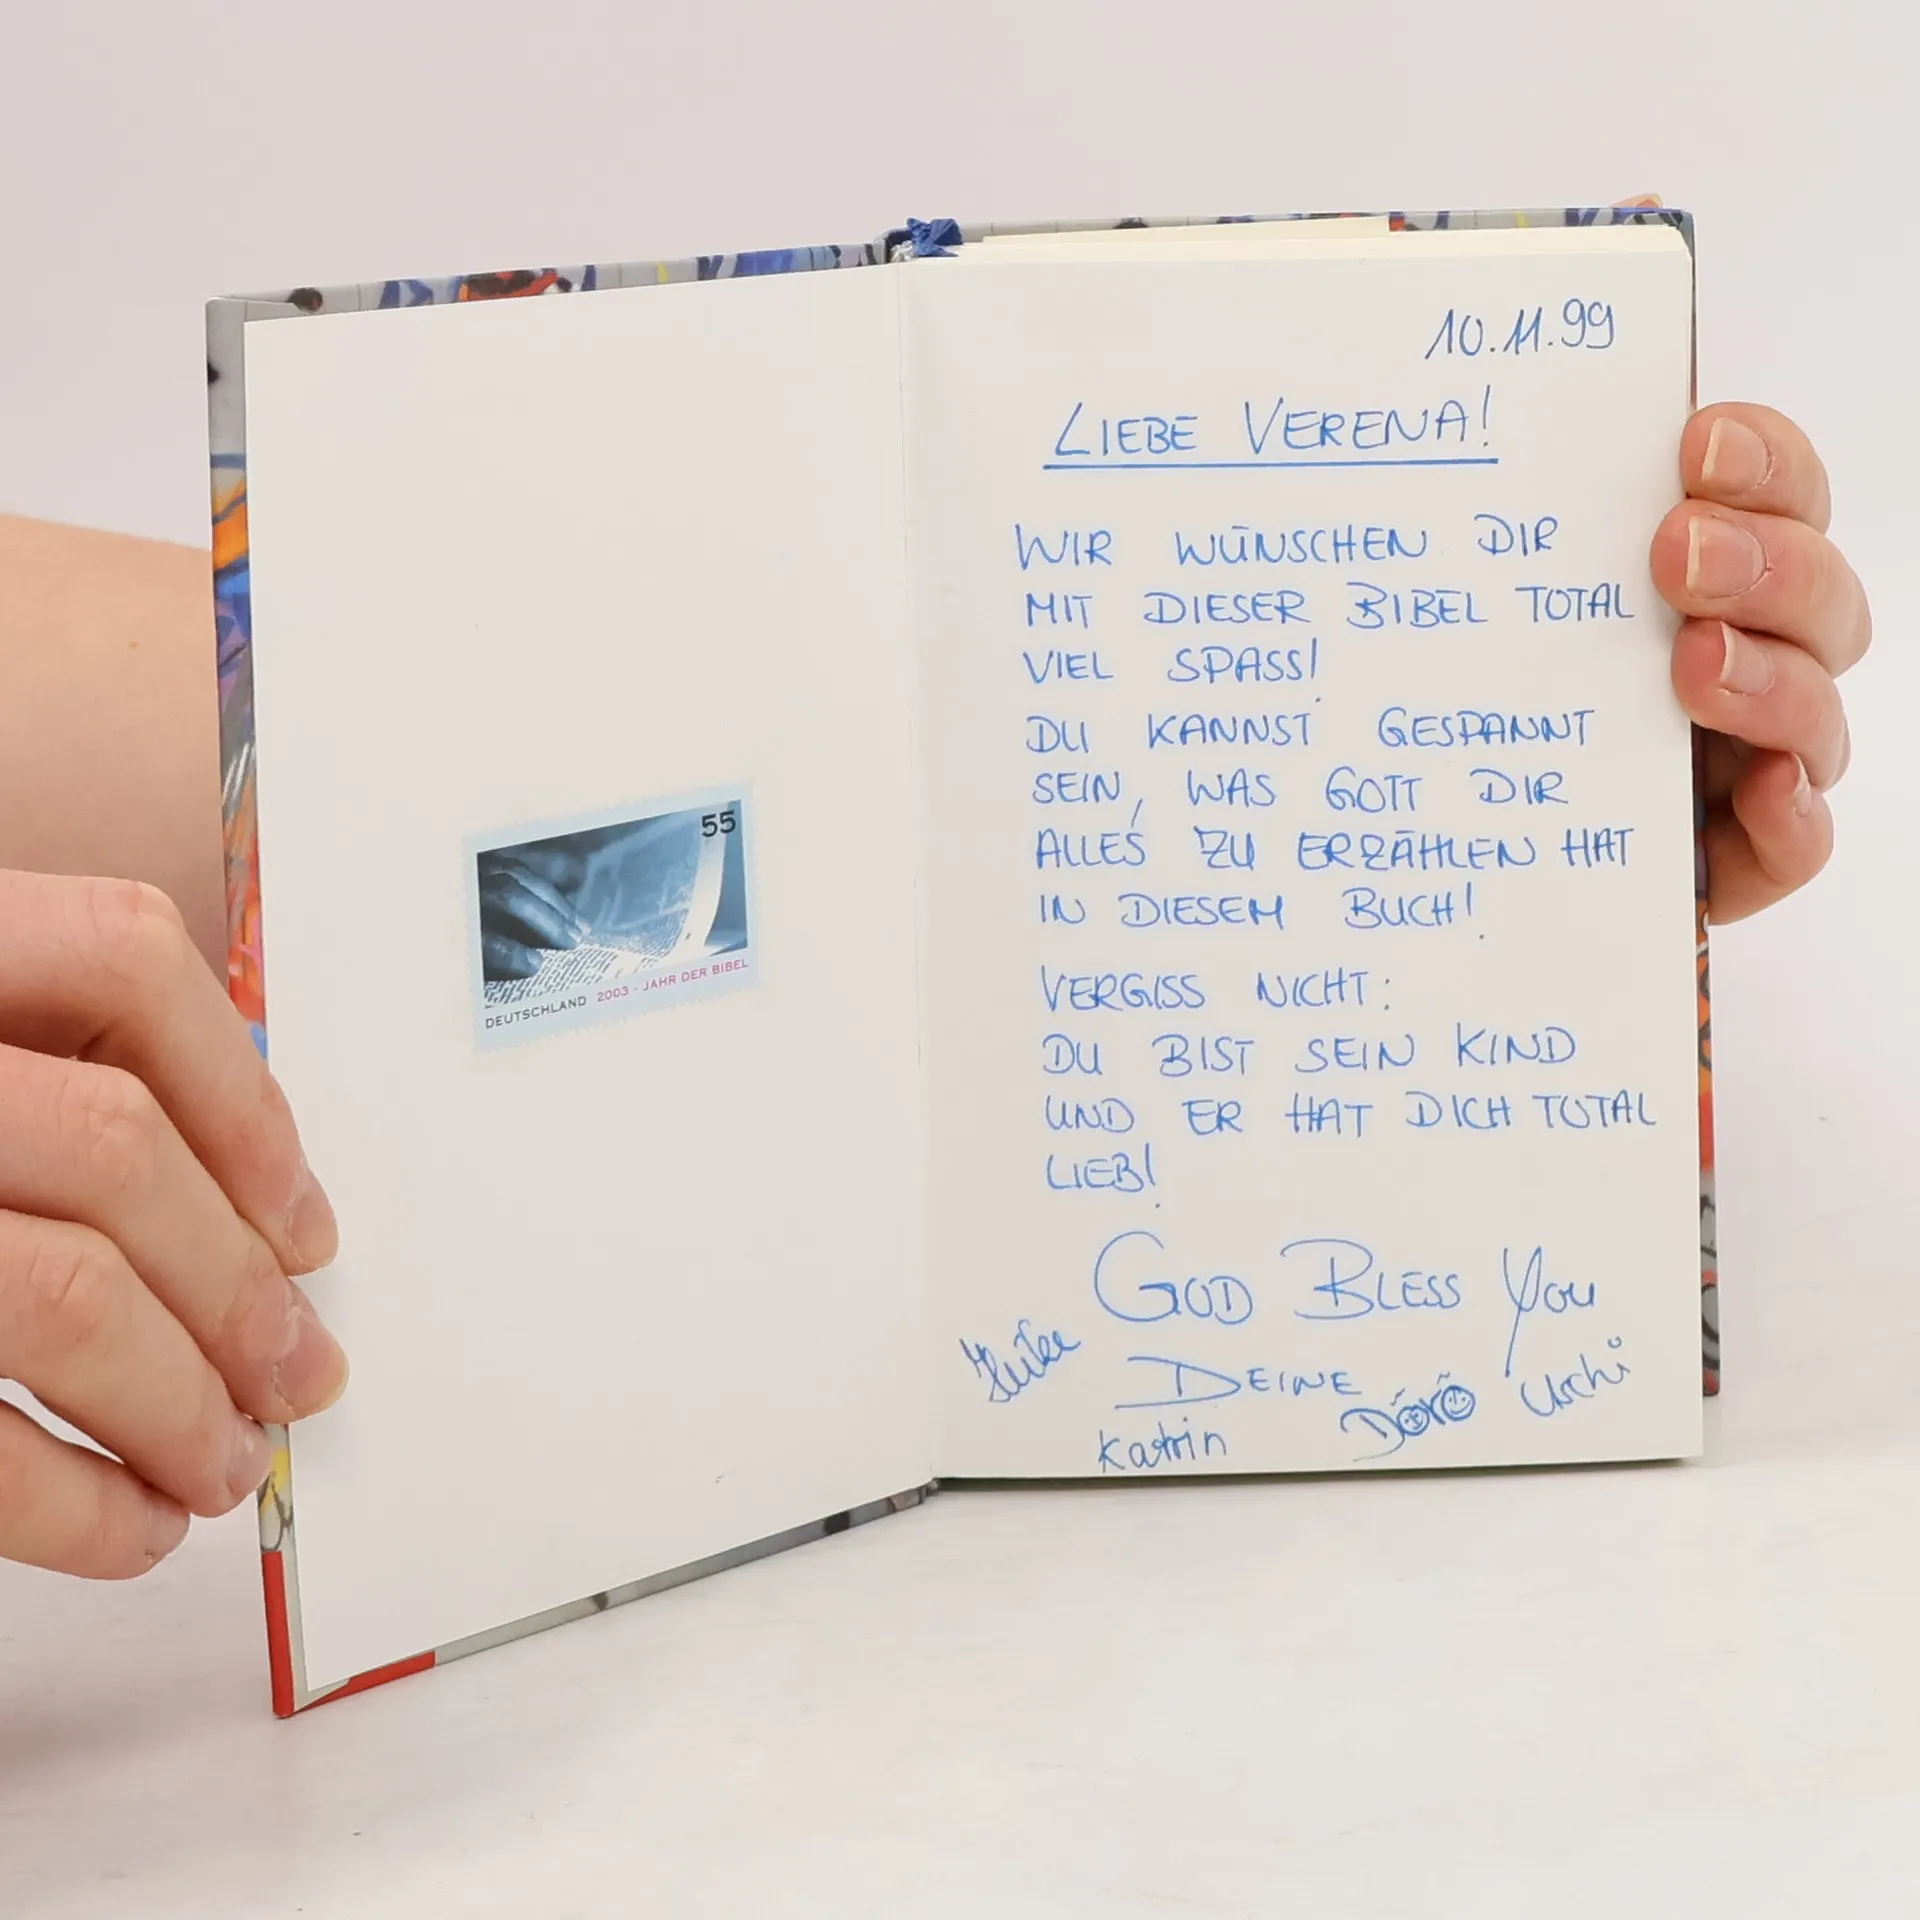 55
DEUTSCHLAND 2003 - JAHR DER BIBEL
10.11.99
LIEBE VERENA!
WIR WÜNSCHEN DIR
MIT DIESER BIBEL TOTAL
VIEL SPASS!
DU KANNST GESPANNT
SEIN, WAS GOTT DIR
ALLES ZU ERZÄHLEN HAT
IN DIESEM BUCH!
VERGISS NICHT:
DU BIST SEIN KIND
UND ER HAT DICH TOTAL
LIEB!
GOD BLESS YOU
DEINE
Katrin Dörö Uschi